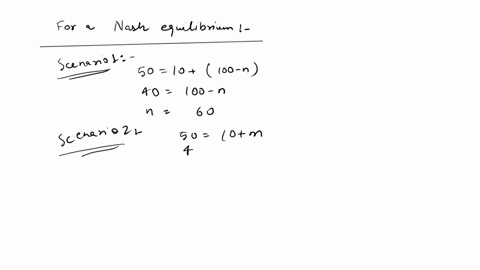 For a Nash equilibrium :-
Scenario 1:-
50 = 10 + (100-n)
40 = 100-n
n = 60
Scenario 2:
50 = 10+m
4